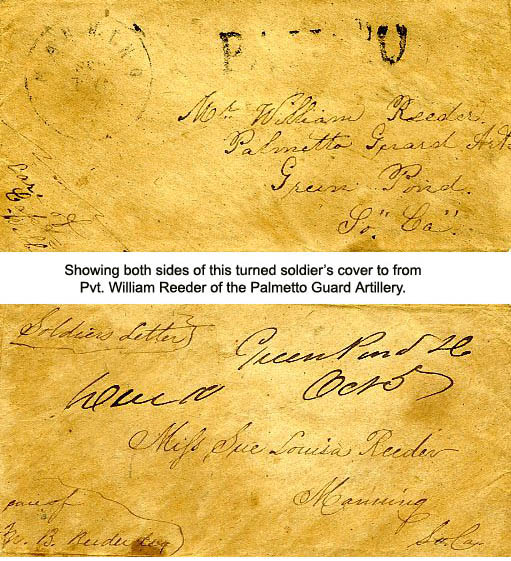 MANNING
PAID
Mr. William Reeder.
Palmetto Guard Art.
Green Pond.
So" Ca".
Showing both sides of this turned soldier's cover to from
Pvt. William Reeder of the Palmetto Guard Artillery.
Soldiers Letter
Green Pond SC
Oct 5
Miss Sue Louisa Reeder
Manning
So. Ca.
care of
W. B. Reeder Esq